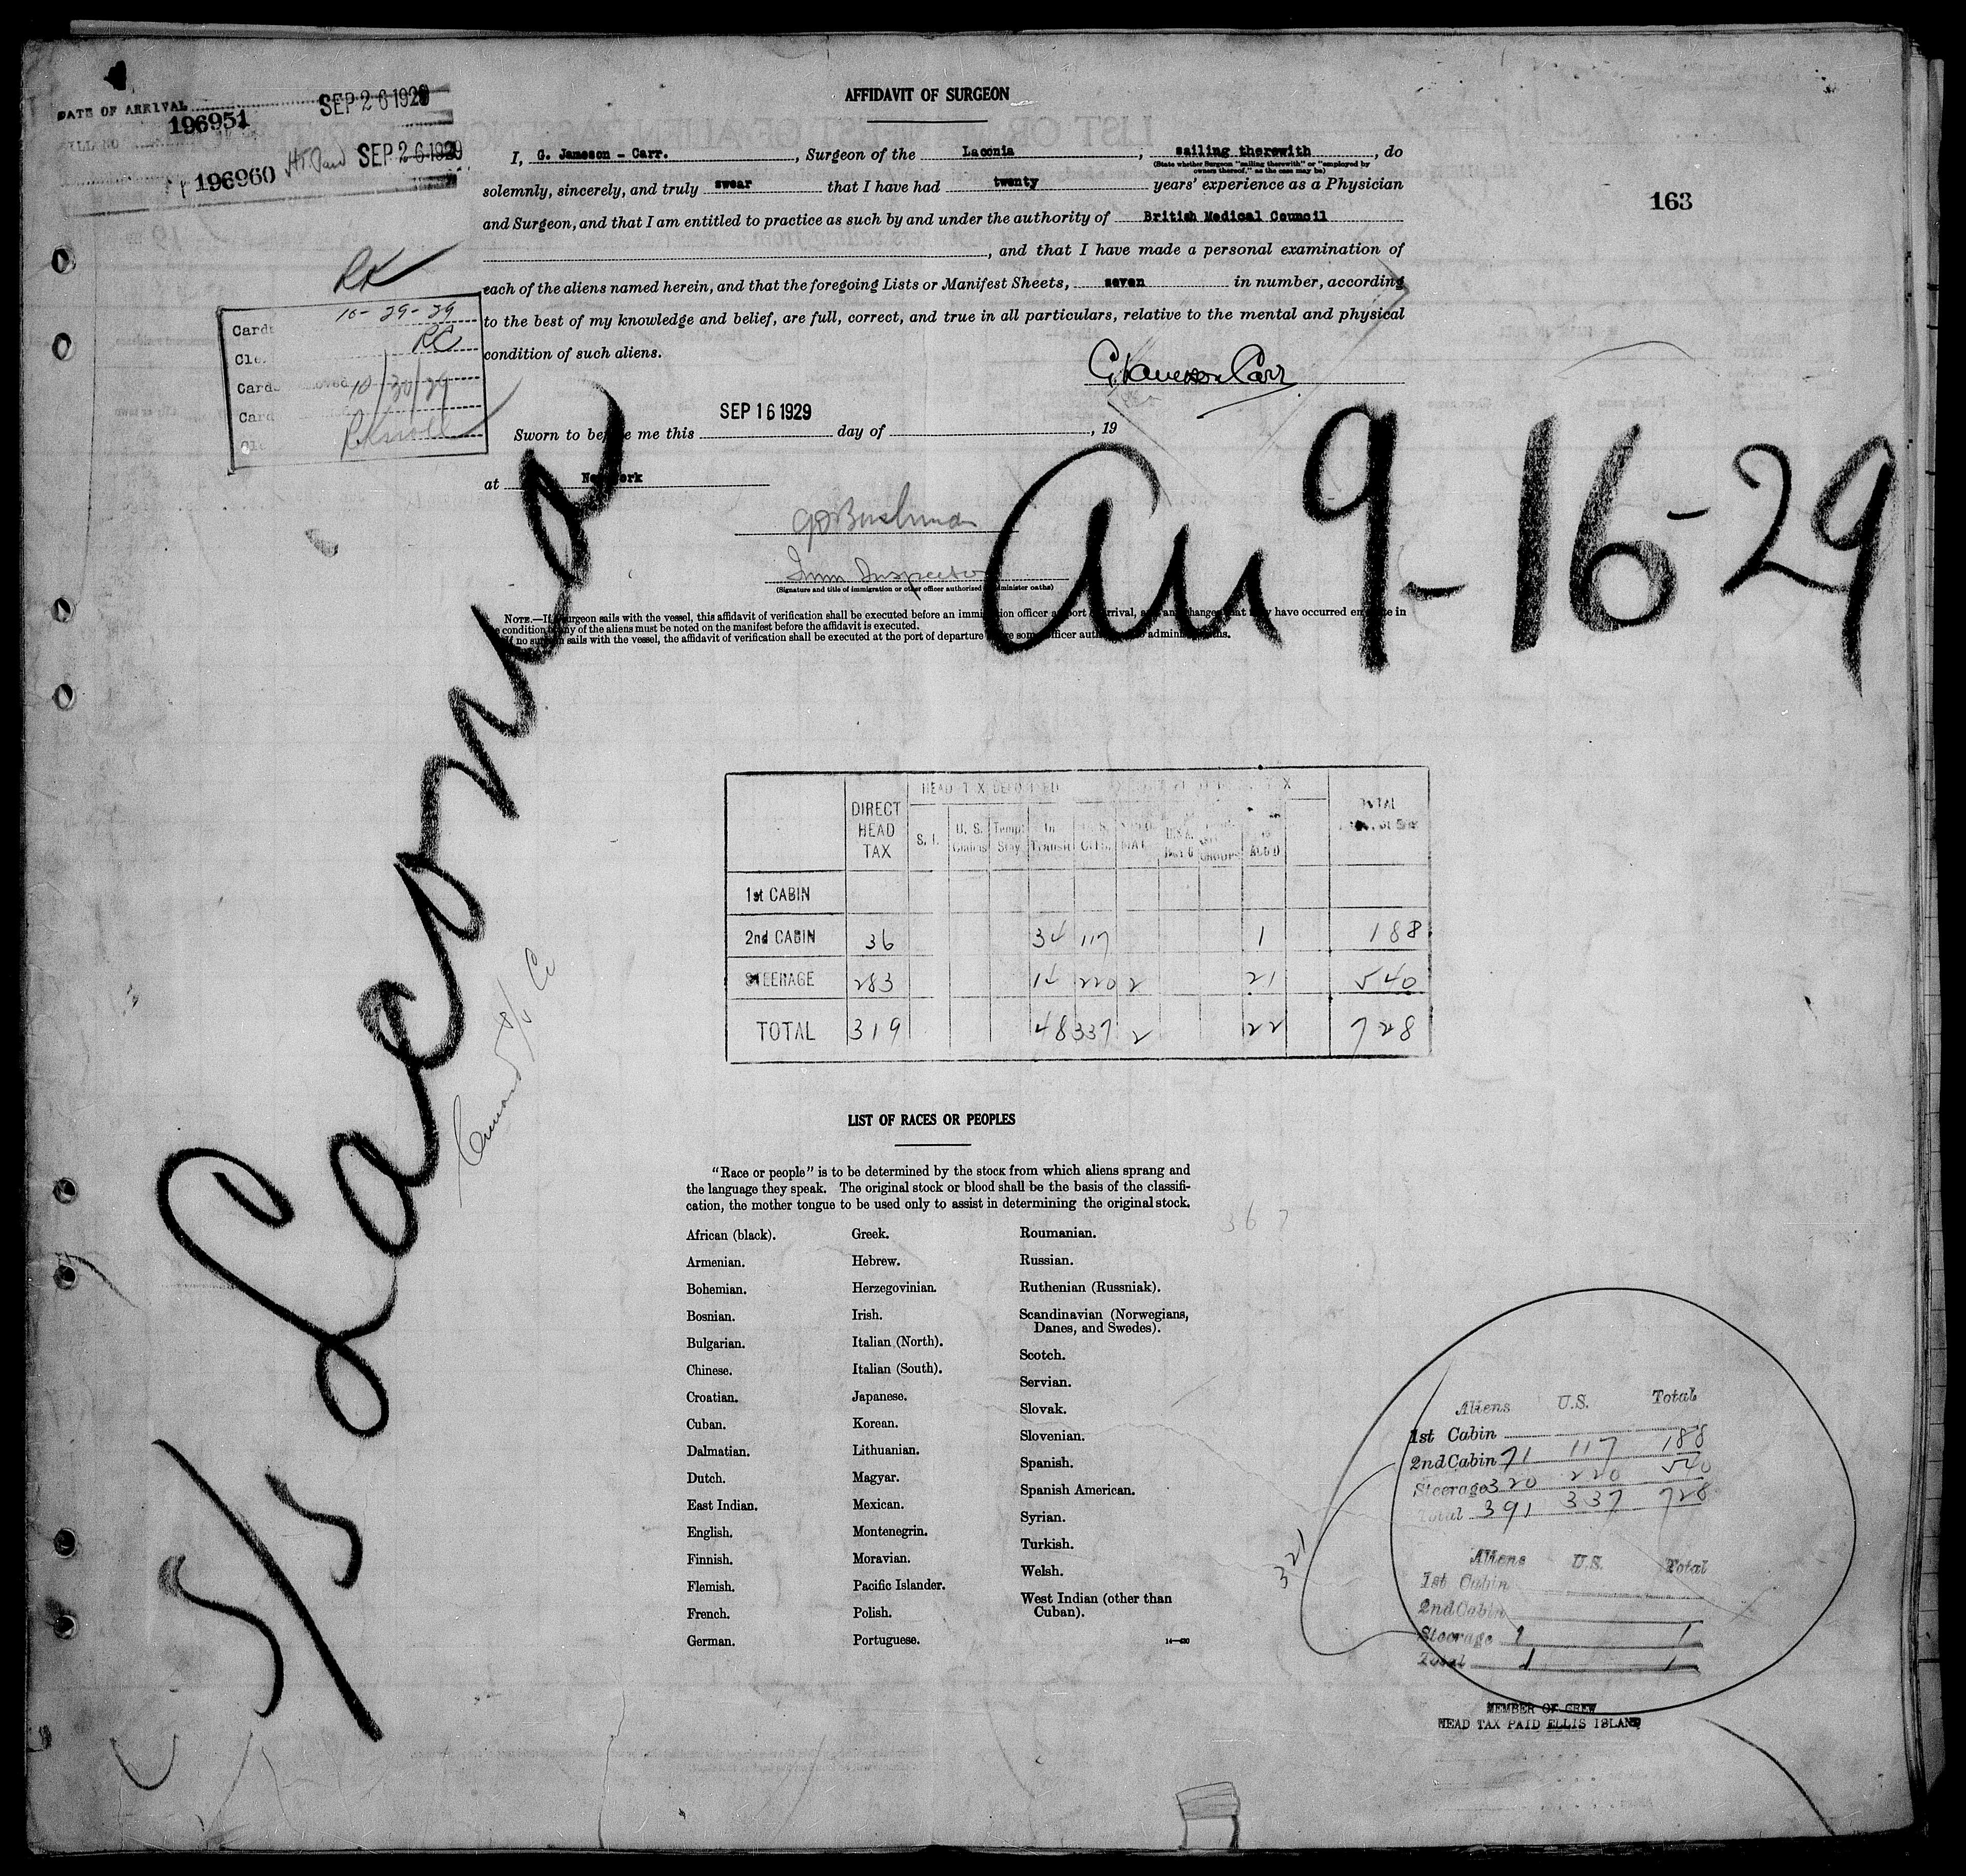 DATE OF ARRIVAL SEP 26 1929
196951
196960 SEP 26 1929
163
RK
10-29-29
RK
10/30/29
AFFIDAVIT OF SURGEON
I, G. Jameson - Carr. , Surgeon of the Laconia , sailing therewith , do
(State whether Surgeon "sailing therewith" or "employed by
owners thereof," as the case may be)
solemnly, sincerely, and truly swear that I have had twenty years' experience as a Physician
and Surgeon, and that I am entitled to practice as such by and under the authority of British Medical Council
, and that I have made a personal examination of
each of the aliens named herein, and that the foregoing Lists or Manifest Sheets, seven in number, according
to the best of my knowledge and belief, are full, correct, and true in all particulars, relative to the mental and physical
condition of such aliens.
G Jameson Carr
Sworn to before me this SEP 16 1929 day of , 19
at New York
Imm Inspector
(Signature and title of immigration or other officer authorised to administer oaths)
NOTE.—If surgeon sails with the vessel, this affidavit of verification shall be executed before an immigration officer at port of arrival, and any changes that may have occurred en route in
the condition of any of the aliens must be noted on the manifest before the affidavit is executed.
If no surgeon sails with the vessel, the affidavit of verification shall be executed at the port of departure before some officer authorized to administer oaths.
S/S Laconia
Cunard S/S Co
9-16-29
DIRECT HEAD TAX S. I. U. S. Temp Stay In Transit TOTAL
1st CABIN
2nd CABIN 36 34 117 1 188
STEERAGE 283 14 220 2 21 540
TOTAL 319 48 337 2 22 728
LIST OF RACES OR PEOPLES
"Race or people" is to be determined by the stock from which aliens sprang and
the language they speak. The original stock or blood shall be the basis of the classifi-
cation, the mother tongue to be used only to assist in determining the original stock.
367
African (black).
Armenian.
Bohemian.
Bosnian.
Bulgarian.
Chinese.
Croatian.
Cuban.
Dalmatian.
Dutch.
East Indian.
English.
Finnish.
Flemish.
French.
German.
Greek.
Hebrew.
Herzegovinian.
Irish.
Italian (North).
Italian (South).
Japanese.
Korean.
Lithuanian.
Magyar.
Mexican.
Montenegrin.
Moravian.
Pacific Islander.
Polish.
Portuguese.
Roumanian.
Russian.
Ruthenian (Russniak).
Scandinavian (Norwegians,
Danes, and Swedes).
Scotch.
Servian.
Slovak.
Slovenian.
Spanish.
Spanish American.
Syrian.
Turkish.
Welsh.
West Indian (other than
Cuban).
321
Aliens U.S. Total
1st Cabin
2nd Cabin 71 117 188
Steerage 320 220 540
Total 391 337 728
Aliens U.S. Total
1st Cabin
2nd Cabin
Steerage 1 1
Total 1 1
MEMBER OF CREW
HEAD TAX PAID ELLIS ISLAND